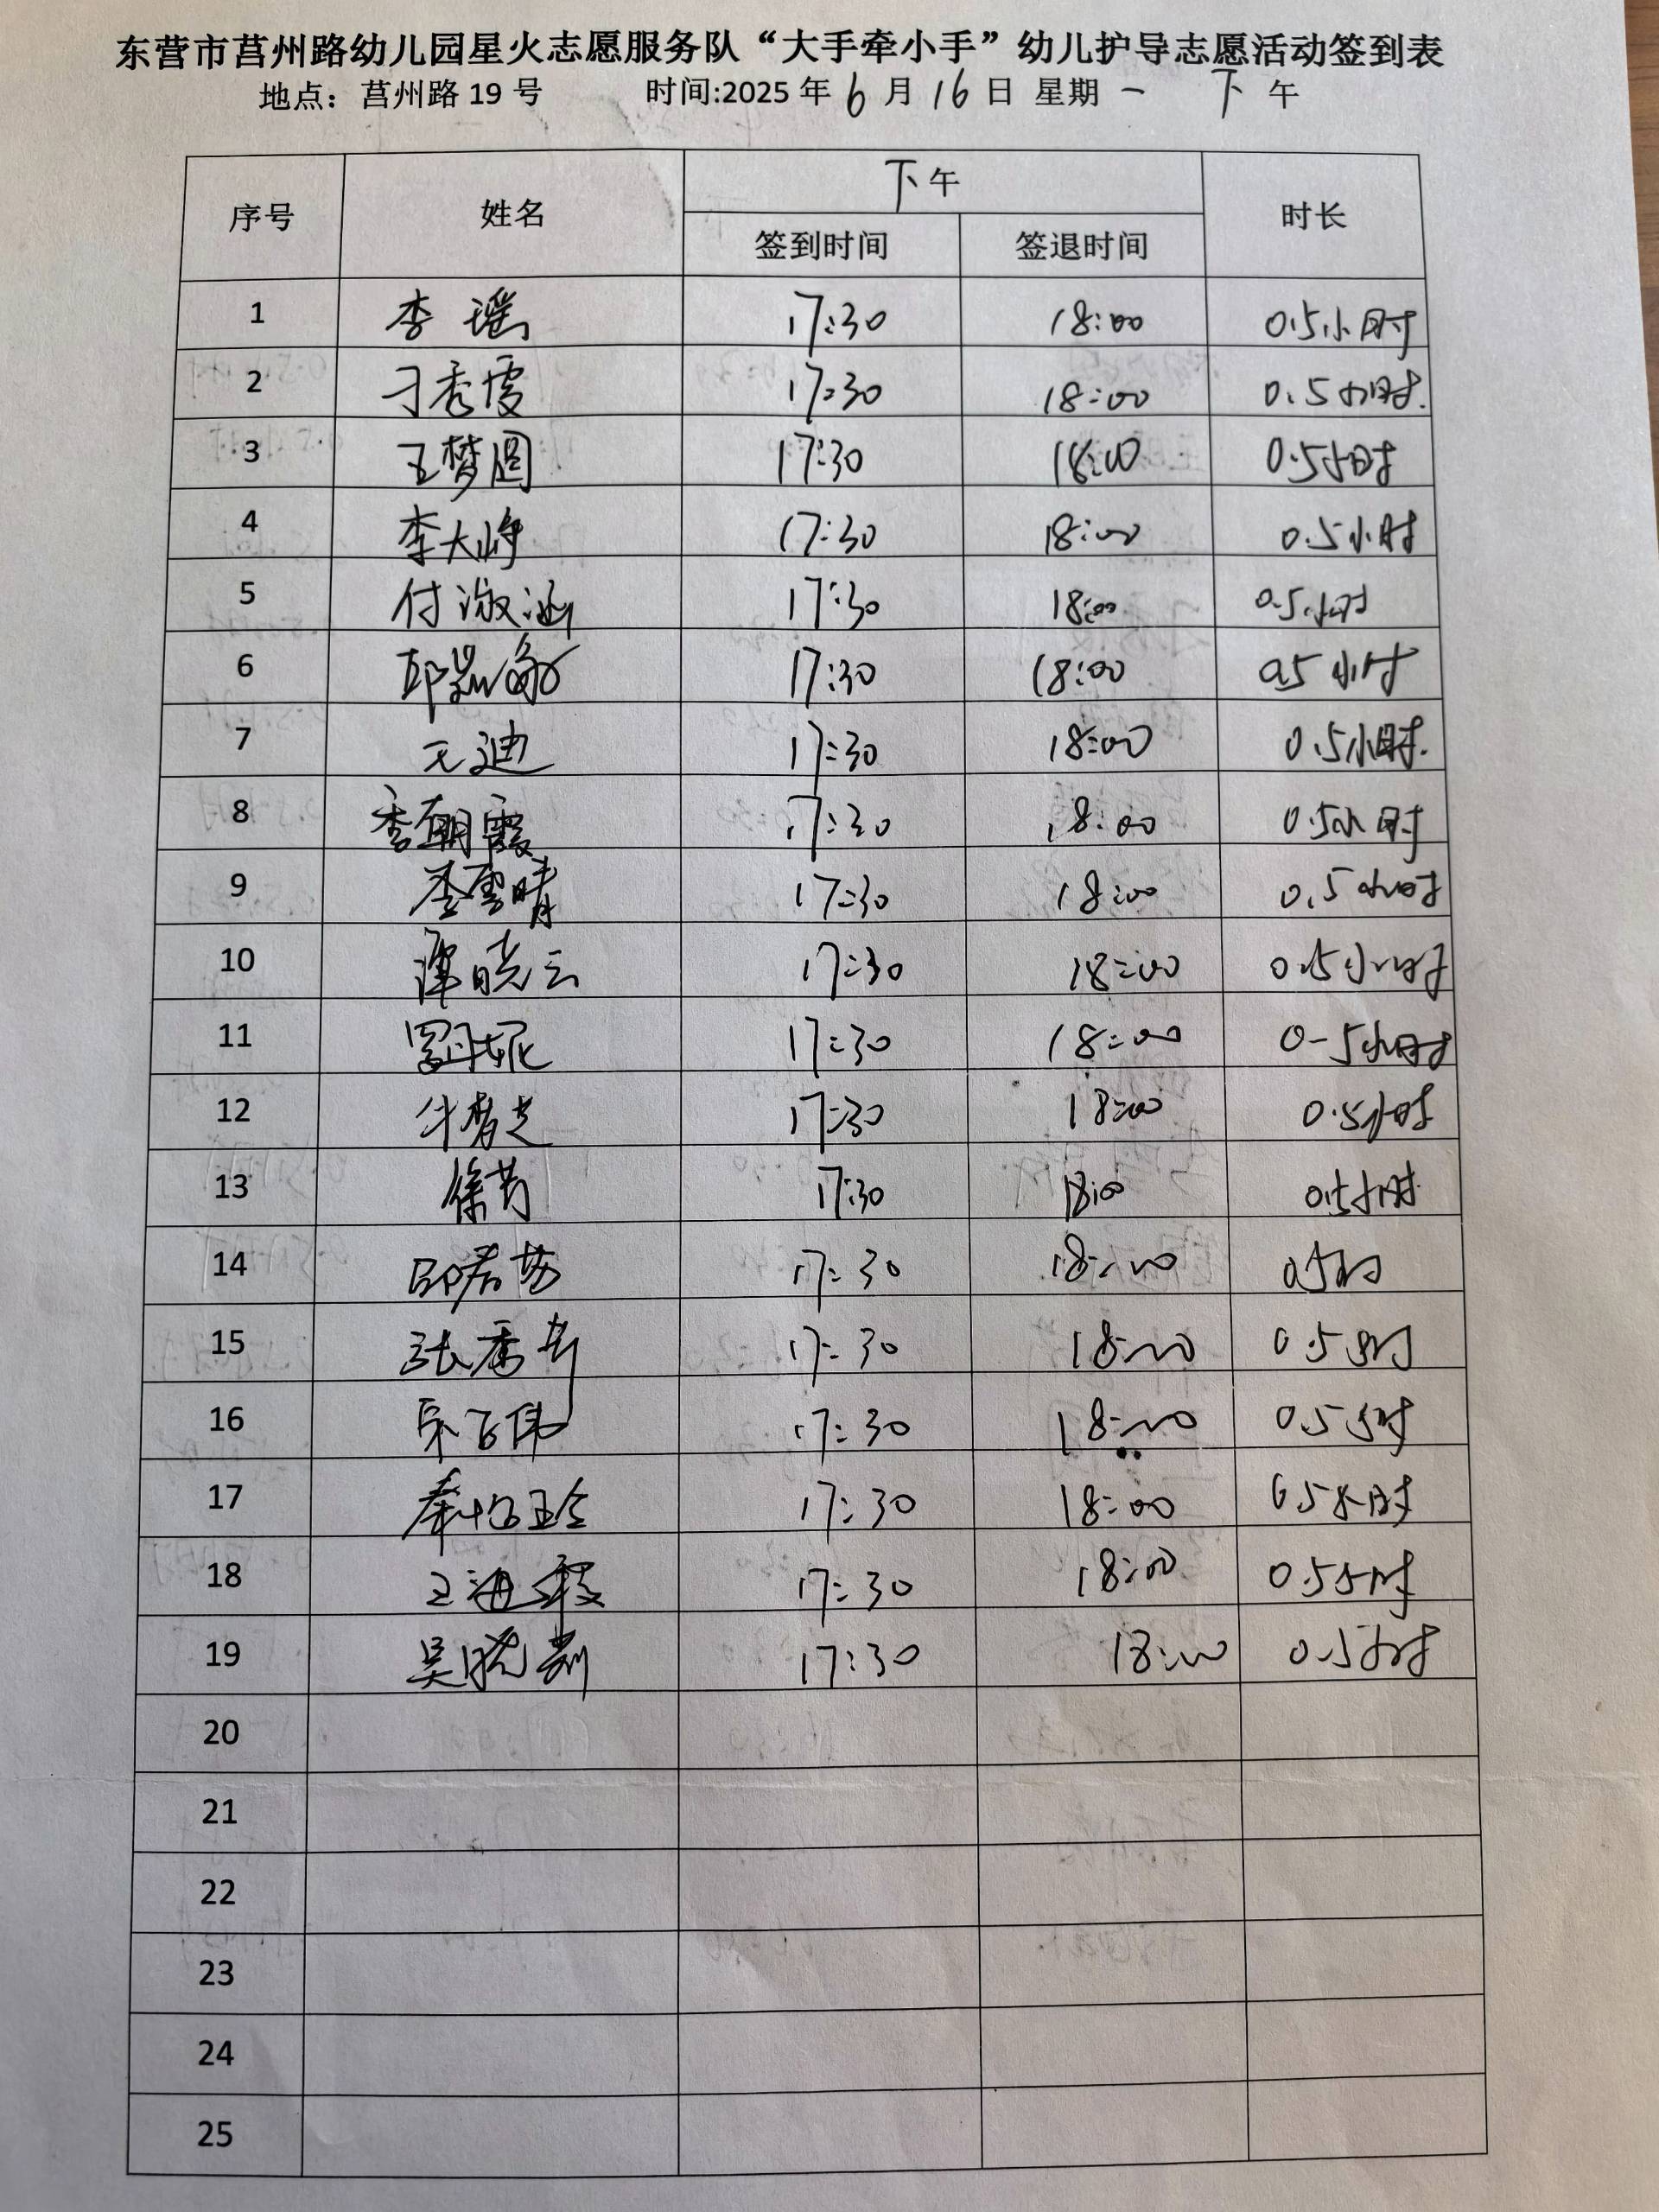 东营市莒州路幼儿园星火志愿服务队“大手牵小手”幼儿护导志愿活动签到表
地点：莒州路 19 号 时间:2025 年 6 月 16 日 星期 一 下 午
序号 姓名 下午 时长
签到时间 签退时间
1 李瑶 17:30 18:00 0.5小时
2 刁秀霞 17:30 18:00 0.5小时.
3 王梦圆 17:30 18:00 0.5小时
4 李大峥 17:30 18:00 0.5小时
5 付淑涵 17:30 18:00 0.5小时
6 17:30 18:00 0.5小时
7 王迪 17:30 18:00 0.5小时.
8 李朝霞 17:30 18:00 0.5小时
9 李雪晴 17:30 18:00 0.5小时
10 谭晓云 17:30 18:00 0.5小时
11 17:30 18:00 0.5小时
12 17:30 18:00 0.5小时
13 徐芳 17:30 18:00 0.5小时
14 17:30 18:00 0.5小时
15 17:30 18:00 0.5小时
16 17:30 18:00 0.5小时
17 17:30 18:00 0.5小时
18 王海霞 17:30 18:00 0.5小时
19 17:30 18:00 0.5小时
20
21
22
23
24
25